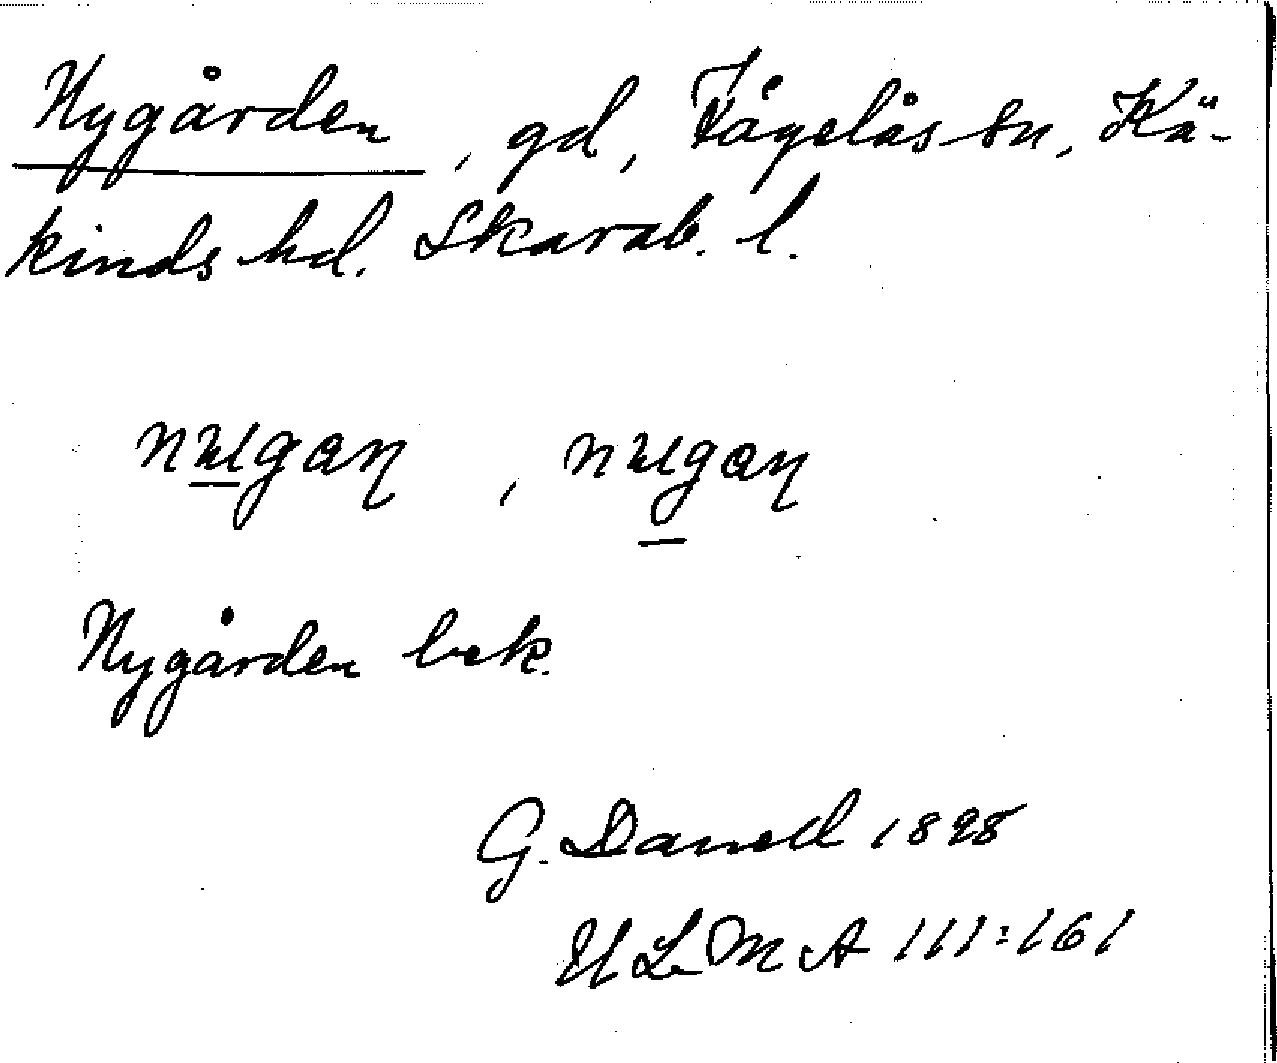 Nygården, gd, Fågelås sn, Kä-
kinds hd. Skarab. l.
Nygården bek.
G. Danell 1898
ULMA 111:161